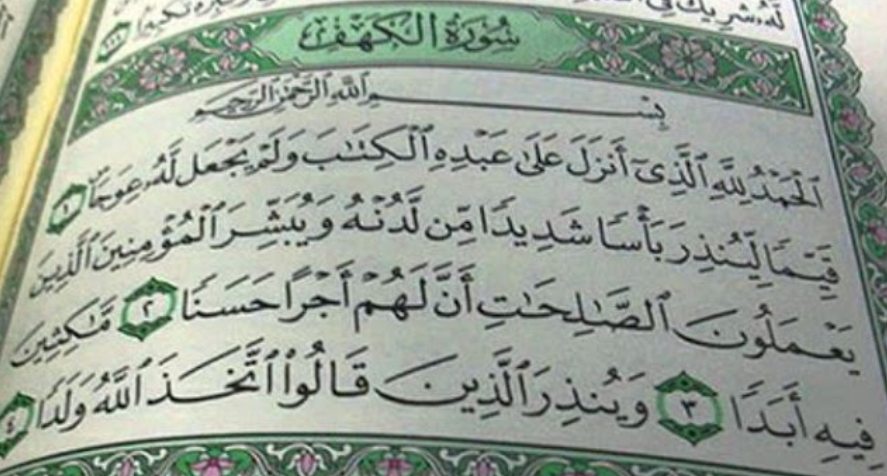 لَّهُۥ شَرِيكٌ فِى
تَكْبِيرًا ١١١
سُورَةُ الكَهْفِ
بِسْمِ ٱللَّهِ ٱلرَّحْمَٰنِ ٱلرَّحِيمِ
ٱلْحَمْدُ لِلَّهِ ٱلَّذِىٓ أَنزَلَ عَلَىٰ عَبْدِهِ ٱلْكِتَٰبَ وَلَمْ يَجْعَل لَّهُۥ عِوَجَا ١
قَيِّمًا لِّيُنذِرَ بَأْسًا شَدِيدًا مِّن لَّدُنْهُ وَيُبَشِّرَ ٱلْمُؤْمِنِينَ ٱلَّذِينَ
يَعْمَلُونَ ٱلصَّٰلِحَٰتِ أَنَّ لَهُمْ أَجْرًا حَسَنًا ٢ مَّٰكِثِينَ
فِيهِ أَبَدًا ٣ وَيُنذِرَ ٱلَّذِينَ قَالُوا۟ ٱتَّخَذَ ٱللَّهُ وَلَدًا ٤